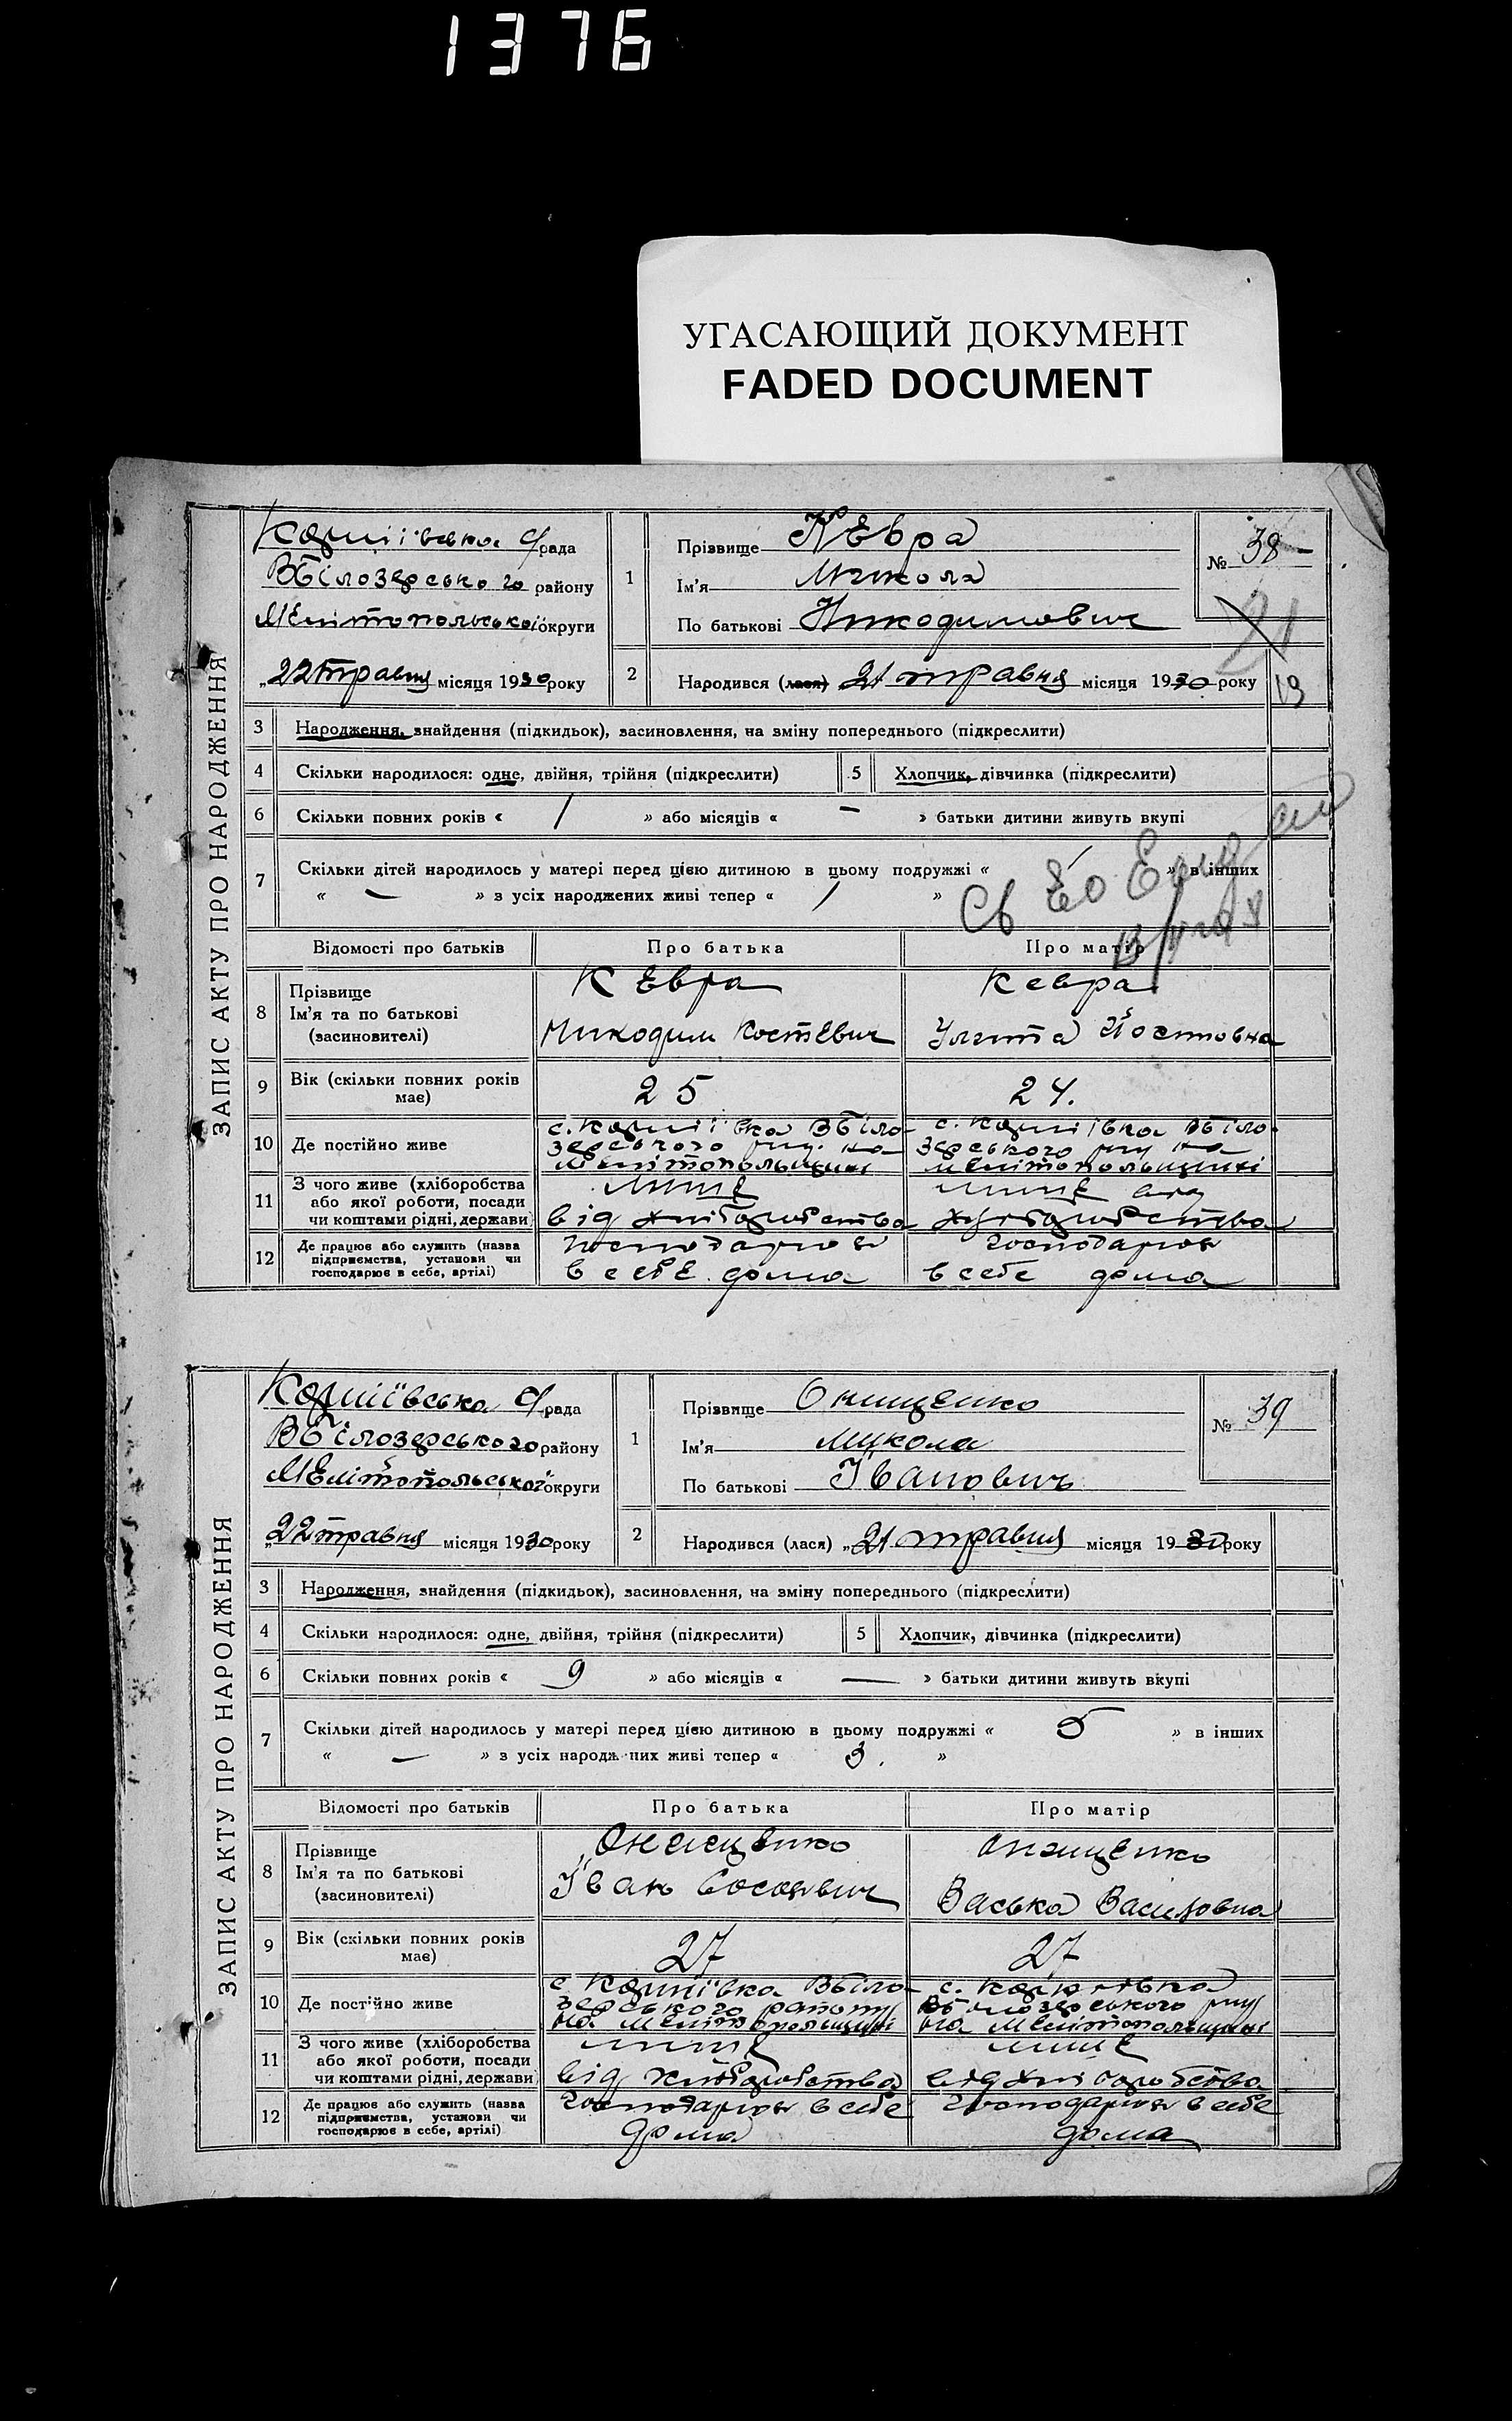 1376
УГАСАЮЩИЙ ДОКУМЕНТ
FADED DOCUMENT
ЗАПИС АКТУ ПРО НАРОДЖЕННЯ
с/рада
ВБілозерського району
Мелітопольської округи
„22 травня місяця 1930 року
1
Прізвище Кевра
Ім'я Микола
По батькові Никодимович
№ 38
21
19
2
Народився (лася) 21 травня місяця 1930 року
3 Народження, знайдення (підкидьок), засиновлення, на зміну попереднього (підкреслити)
4 Скільки народилося: одне, двійня, трійня (підкреслити)
5 Хлопчик, дівчинка (підкреслити)
6 Скільки повних років « / » або місяців « — » батьки дитини живуть вкупі
7 Скільки дітей народилось у матері перед цією дитиною в цьому подружжі « / » в інших
« — » з усіх народжених живі тепер « / »
Відомості про батьків Про батька Про матір
8 Прізвище
Ім'я та по батькові
(засновителі)
Кевра
Никодим Костевич
Кевра
Улита
9 Вік (скільки повних років
має)
25
24.
10 Де постійно живе
ВБіло-
зерського на
Мелітопольщині
ВБіло-
зерського на
Мелітопольщині
11 З чого живе (хліборобства
або якої роботи, посади
чи коштами рідні, держави)
лише
від хліборобства
лише від
хліборобства
12 Де працює або служить (назва
підприємства, установи чи
господарює в себе, артілі)
господарює
в себе дома
господарює
в себе дома
ЗАПИС АКТУ ПРО НАРОДЖЕННЯ
с/рада
ВБілозерського району
Мелітопольської округи
„22 травня місяця 1930 року
1
Прізвище Онищенко
Ім'я Микола
По батькові Іванович
№ 39
2
Народився (лася) „21 травня місяця 1930 року
3 Народження, знайдення (підкидьок), засиновлення, на зміну попереднього (підкреслити)
4 Скільки народилося: одне, двійня, трійня (підкреслити)
5 Хлопчик, дівчинка (підкреслити)
6 Скільки повних років « 9 » або місяців « — » батьки дитини живуть вкупі
7 Скільки дітей народилось у матері перед цією дитиною в цьому подружжі « 5 » в інших
« — » з усіх народжених живі тепер « 3. »
Відомості про батьків Про батька Про матір
8 Прізвище
Ім'я та по батькові
(засиновителі)
Онищенко
Іван
Онищенко
Васька Василовна
9 Вік (скільки повних років
має)
27
27
10 Де постійно живе
ВБіло-
зерського району
на Мелітопольщині
ВБілозерського
на Мелітопольщині
11 З чого живе (хліборобства
або якої роботи, посади
чи коштами рідні, держави
лише
від хліборобства
лише
від хліборобства
12 Де працює або служить (назва
підприємства, установи чи
господарює в себе, артілі)
господарює в себе
дома
господарює в себе
дома